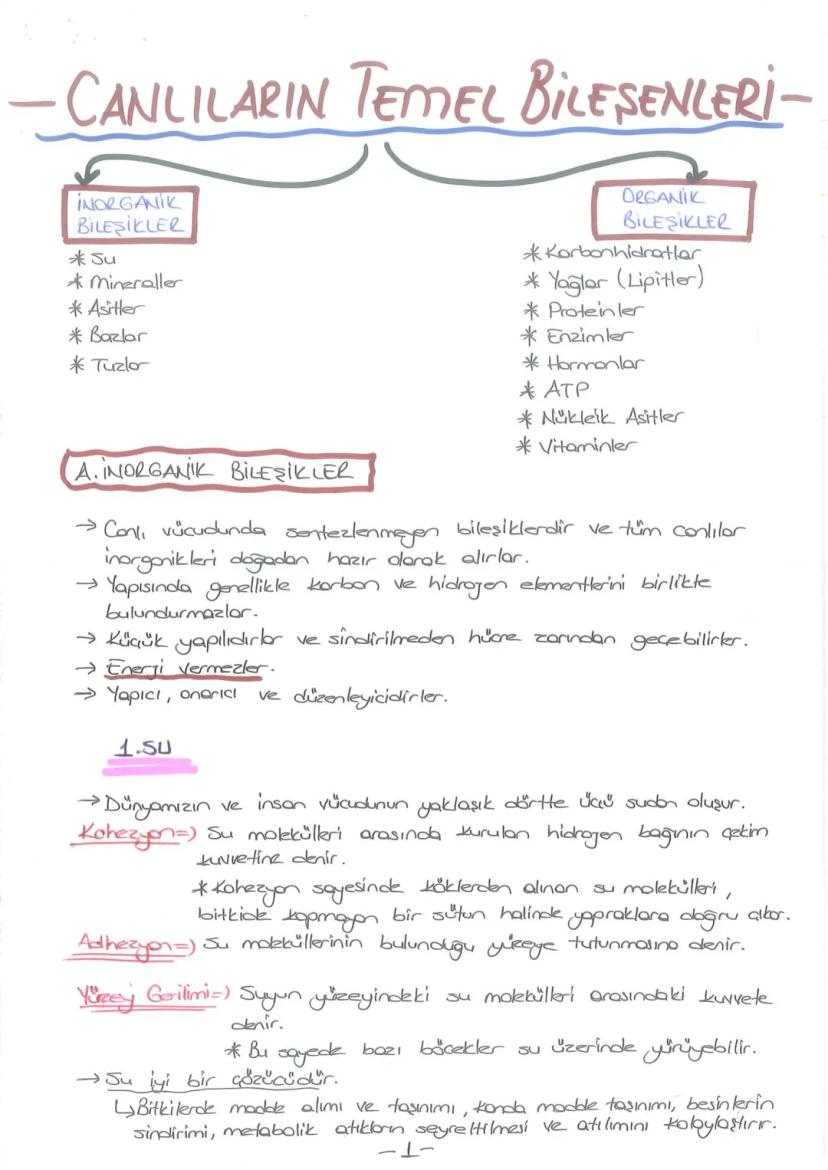 - CANLILARIN TEMEL BİLEŞENLERİ -
İNORGANİK
BİLEŞİKLER
* Su
* Mineraller
* Asitler
* Bazlar
* Tuzlar
ORGANİK
BİLEŞİKLER
* Karbonhidratlar
* Yağlar (Lipitler)
* Proteinler
* Enzimler
* Hormonlar
* ATP
* Nükleik Asitler
* Vitaminler
A. İNORGANİK BİLEŞİKLER
→ Canlı vücudunda sentezlenmeyen bileşiklerdir ve tüm canlılar
inorganikleri doğadan hazır olarak alırlar.
→ Yapısında genellikle karbon ve hidrojen elementlerini birlikte
bulundurmazlar.
→ Küçük yapılıdırlar ve sindirilmeden hücre zarından geçebilirler.
→ Enerji vermezler.
→ Yapıcı, onarıcı ve düzenleyicidirler.
1. SU
→ Dünyamızın ve insan vücudunun yaklaşık dörtte üçü sudan oluşur.
Kohezyon=) Su molekülleri arasında kurulan hidrojen bağının çekim
kuvvetine denir.
* Kohezyon sayesinde köklerden alınan su molekülleri,
bitkide kopmayan bir sütun halinde yapraklara doğru çıkar.
Adhezyon=) Su moleküllerinin bulunduğu yüzeye tutunmasına denir.
Yüzey Gerilimi=) Suyun yüzeyindeki su molekülleri arasındaki kuvvete
denir.
* Bu sayede bazı böcekler su üzerinde yürüyebilir.
→ Su iyi bir çözücüdür.
↳ Bitkilerde madde alımı ve taşınımı, kanda madde taşınımı, besinlerin
sindirimi, metabolik atıkların seyreltilmesi ve atılımını kolaylaştırır.
- 1 -